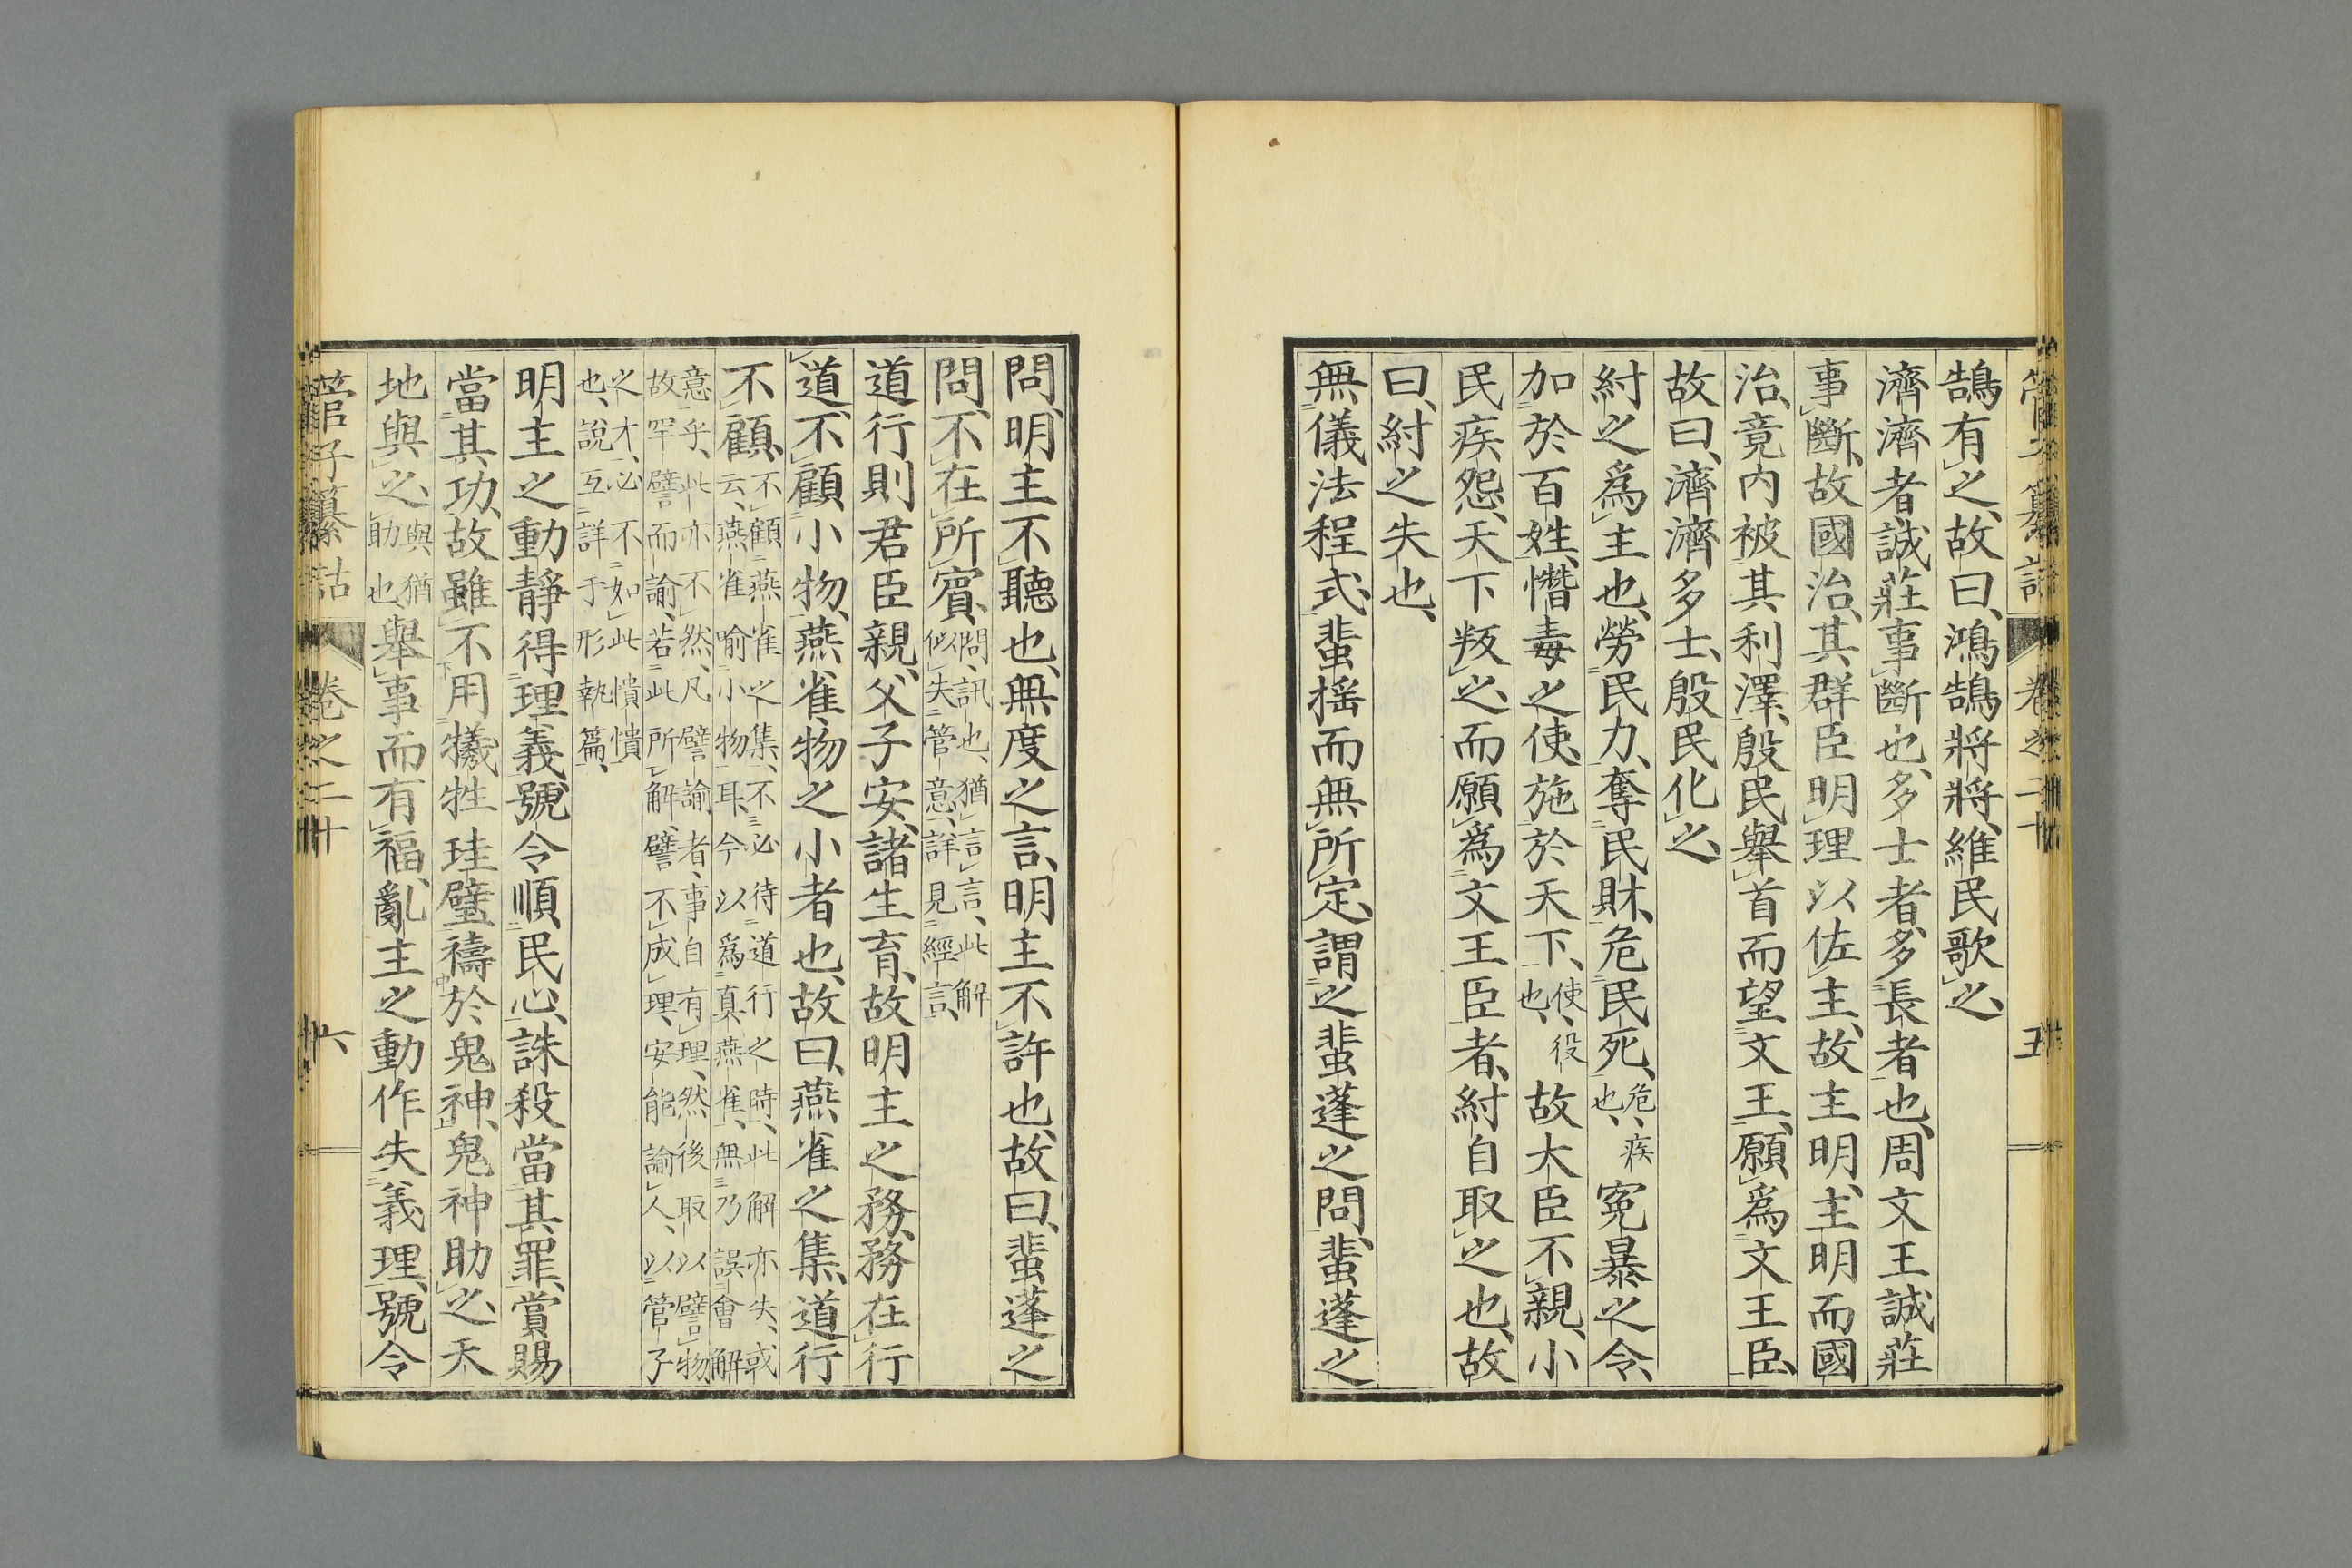 管子纂詁 卷之二十 五
鵠有之、故曰、鴻鵠將將、維民歌之、
濟濟者誠莊事斷也、多士者、多長者也、周文王誠莊
事斷、故國治、其群臣明理以佐主、故主明、主明而國
治、竟内被其利澤、殷民舉首而望文王、願爲文王臣、
故曰、濟濟多士、殷民化之、
紂之爲主也、勞民力、奪民財、危民死、危、疾也、冤暴之令、
加於百姓、憯毒之使、施於天下、使、役也、故大臣不親、小
民疾怨、天下叛之、而願爲文王臣者、紂自取之也、故
曰、紂之失也、
無儀法程式、蜚揺而無所定、謂之蜚蓬之問、蜚蓬之
問、明主不聽也、無度之言、明主不許也、故曰、蜚蓬之
問、不在所賓、問、訊也、猶言言、此解似失管意、詳見經言、
道行則君臣親、父子安、諸生育、故明主之務、務在行
道、不顧小物、燕雀、物之小者也、故曰、燕雀之集、道行
不顧、不顧燕雀之集、不必待道行之時、此解亦失、或云、燕雀喻小物耳、今以爲真燕雀、無乃誤會解
意乎、此亦不然、凡譬諭者、事自有理、然後取以譬物故罕譬而諭、若此所解、譬不成理、安能諭人、以管子
之才、必不如此憒憒也、説互詳于形埶篇、
明主之動靜得理義、號令順民心、誅殺當其罪、賞賜
當其功、故雖不用犧牲珪璧禱於鬼神、鬼神助之、天
地與之、與猶助也、舉事而有福、亂主之動作失義理、號令
管子纂詁 卷之二十 六